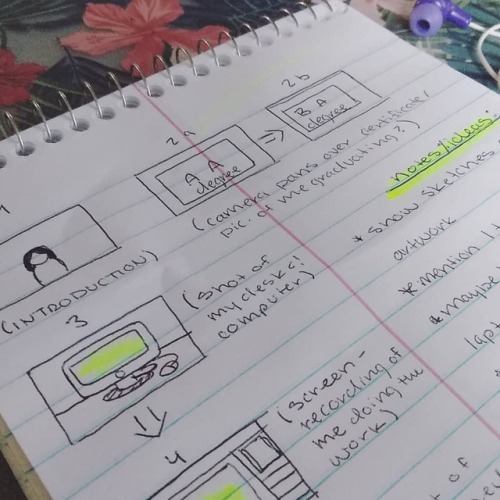 1
(INTRODUCTION)
2a
A A
degree
2b
B A
degree
(camera pans over certificate/
pic. of me graduating?)
3
(shot of
my desk &
computer)
4
(screen-
recording of
me doing the
work)
notes/ideas:
* show sketches
artwork
* mention I
* maybe
lap
*
of